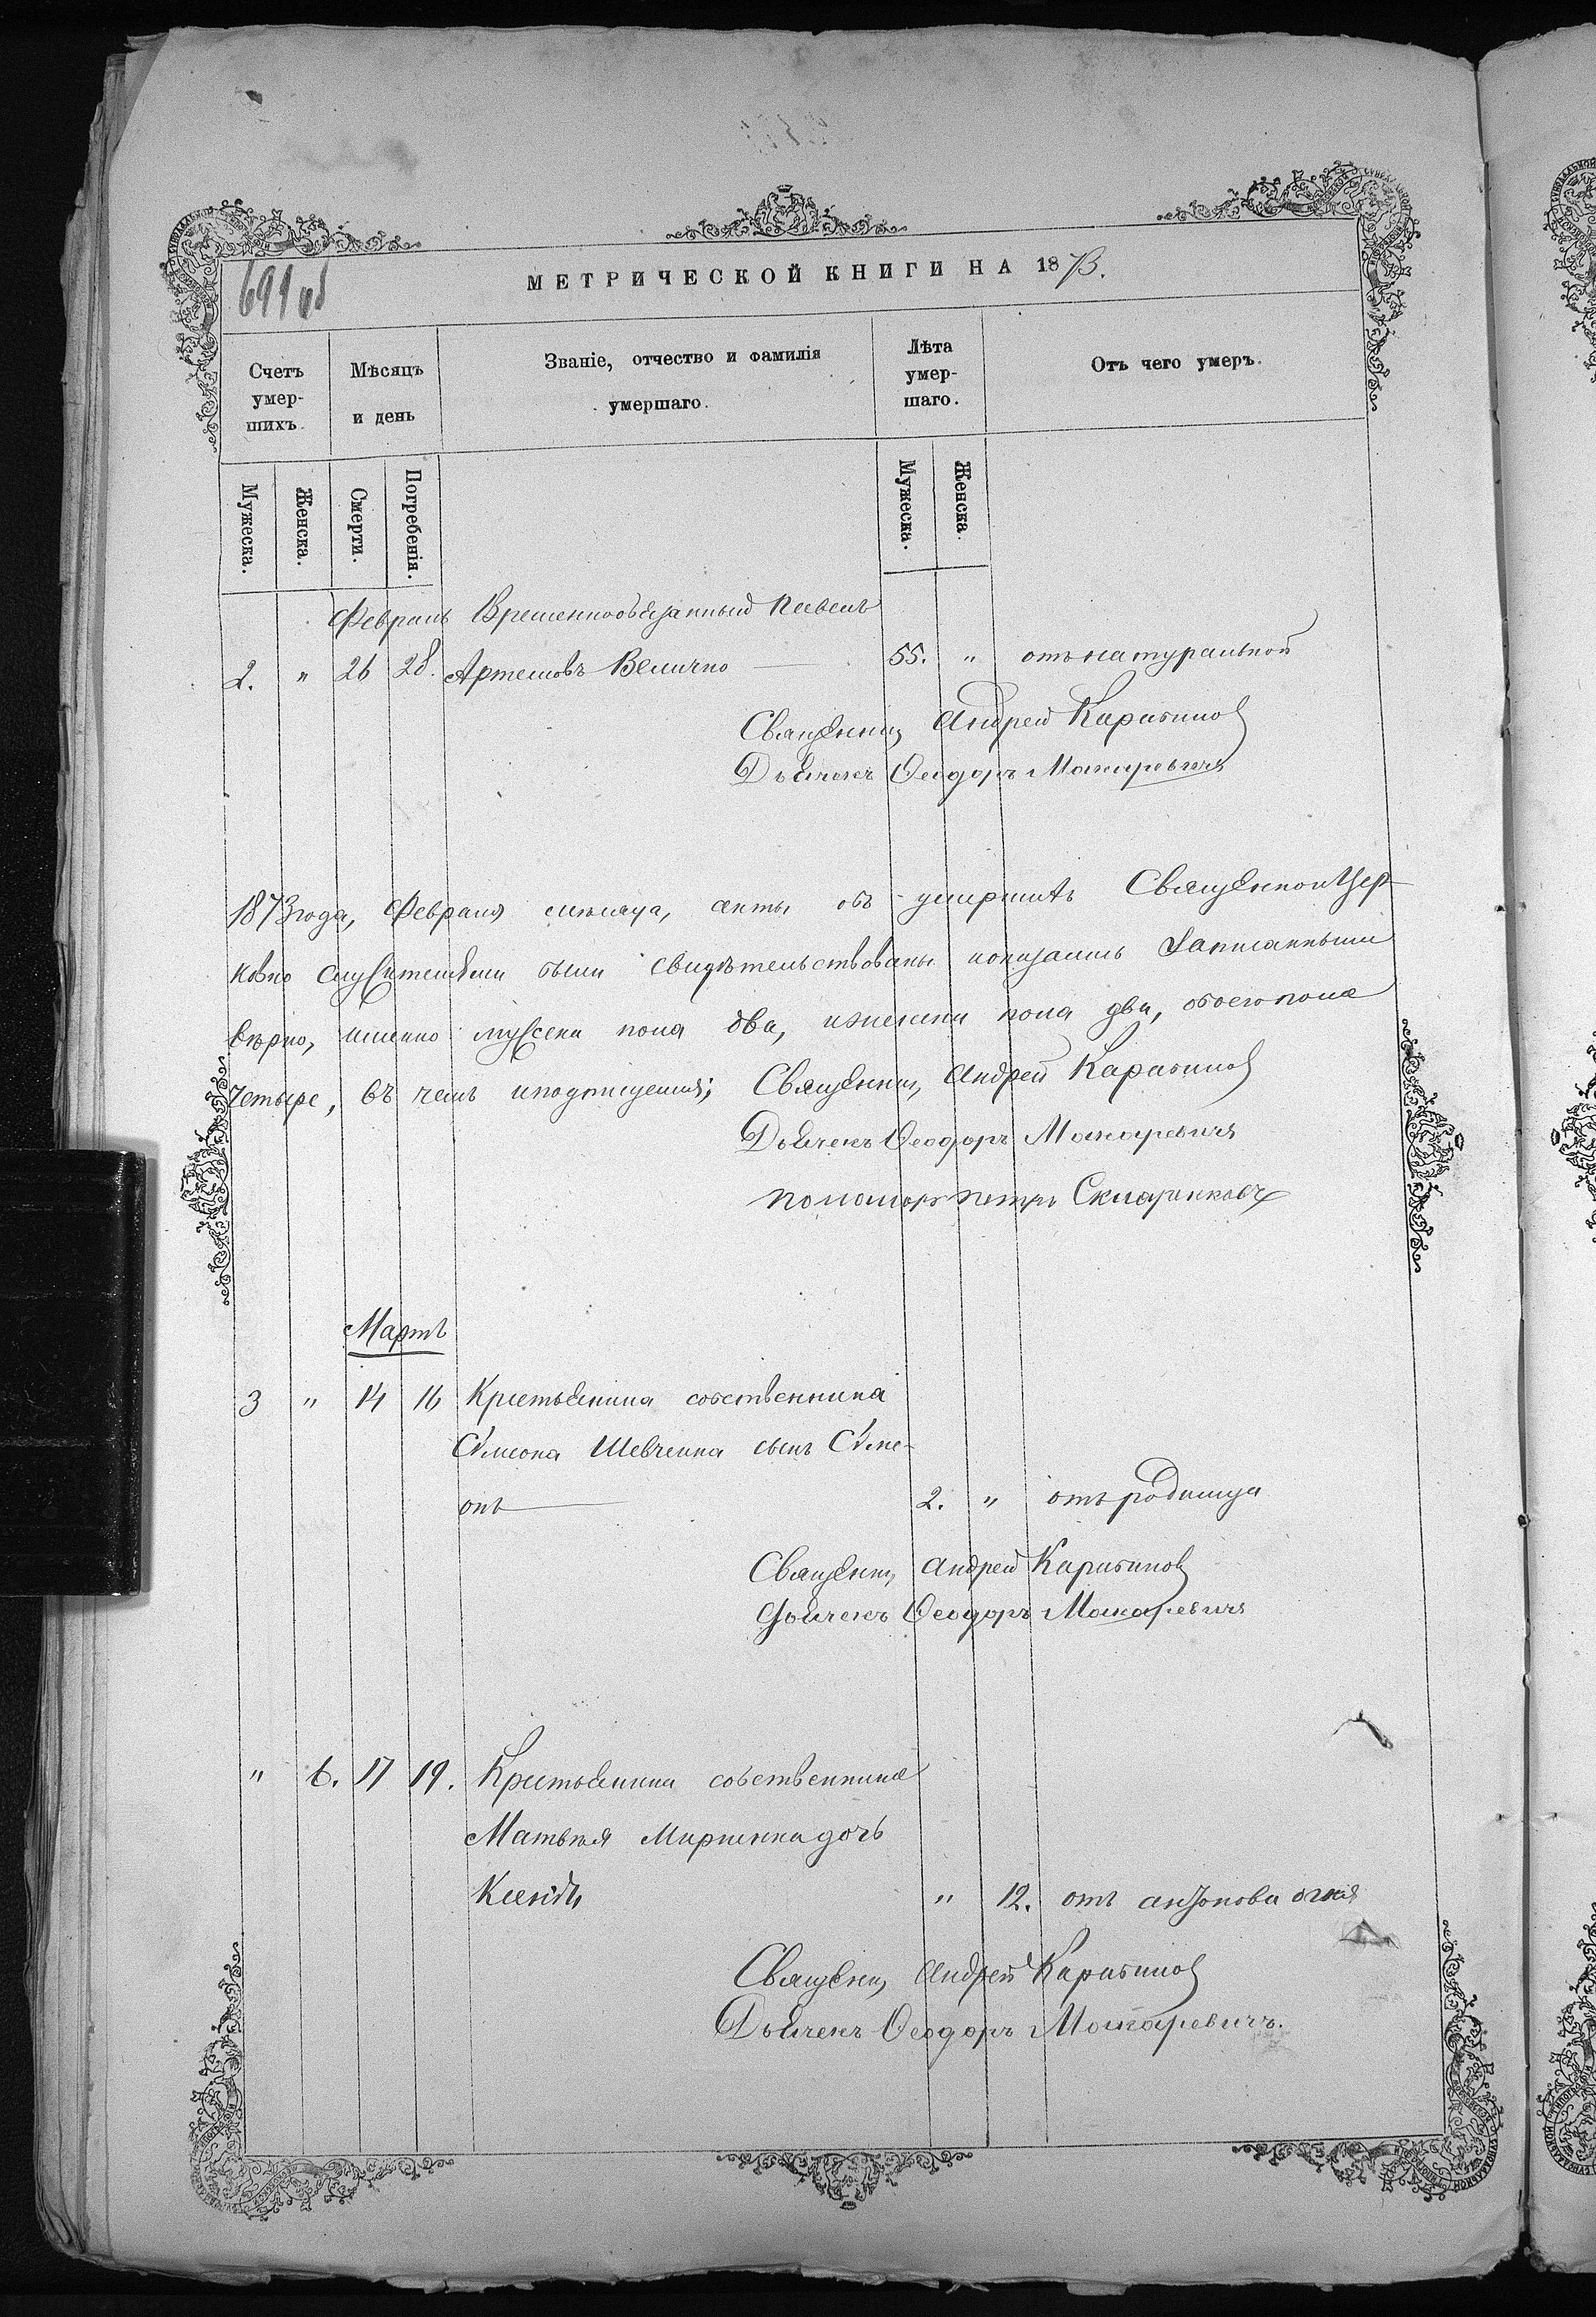 691 об
МЕТРИЧЕСКОЙ КНИГИ НА 1873.
Счетъ умер-шихъ. Мѣсяцъ и день Званіе, отчество и фамилія умершаго. Лѣта умер-шаго. Отъ чего умеръ.
Мужеска. Женска. Смерти. Погребенія. Мужеска. Женска.
Февраль Временнообязанный Павелъ
2. " 26 28. Артемовъ Величко 55. " отъ натуральной
Священник Андрей Карабинов
Дьячекъ Ѳеодоръ Макаревичъ
1873 года, Февраля мѣсяца, акты объ умершихъ Священно и Цер-
ковно служителями были свидѣтельствованы и оказались записанными
вѣрно, именно мужеска пола два, и женска пола два, обоего пола
четыре, въ чемъ и подписуемся; Священник Андрей Карабинов
Дьячекъ Ѳеодоръ Макаревичъ
пономарь Петръ Скляренковъ
Мартъ
3 " 14 16 Крестьянина собственника
Сѵмеона Шевченка сынъ Сѵме-
онъ 2. " отъ родимца
Священник Андрей Карабинов
Дьячекъ Ѳеодоръ Макаревичъ
" 6. 17 19. Крестьянина собственника
Матвѣя Мириенка дочь
Ксенія " 12. отъ антонова огня
Священник Андрей Карабинов
Дьячекъ Ѳеодоръ Макаревичъ.